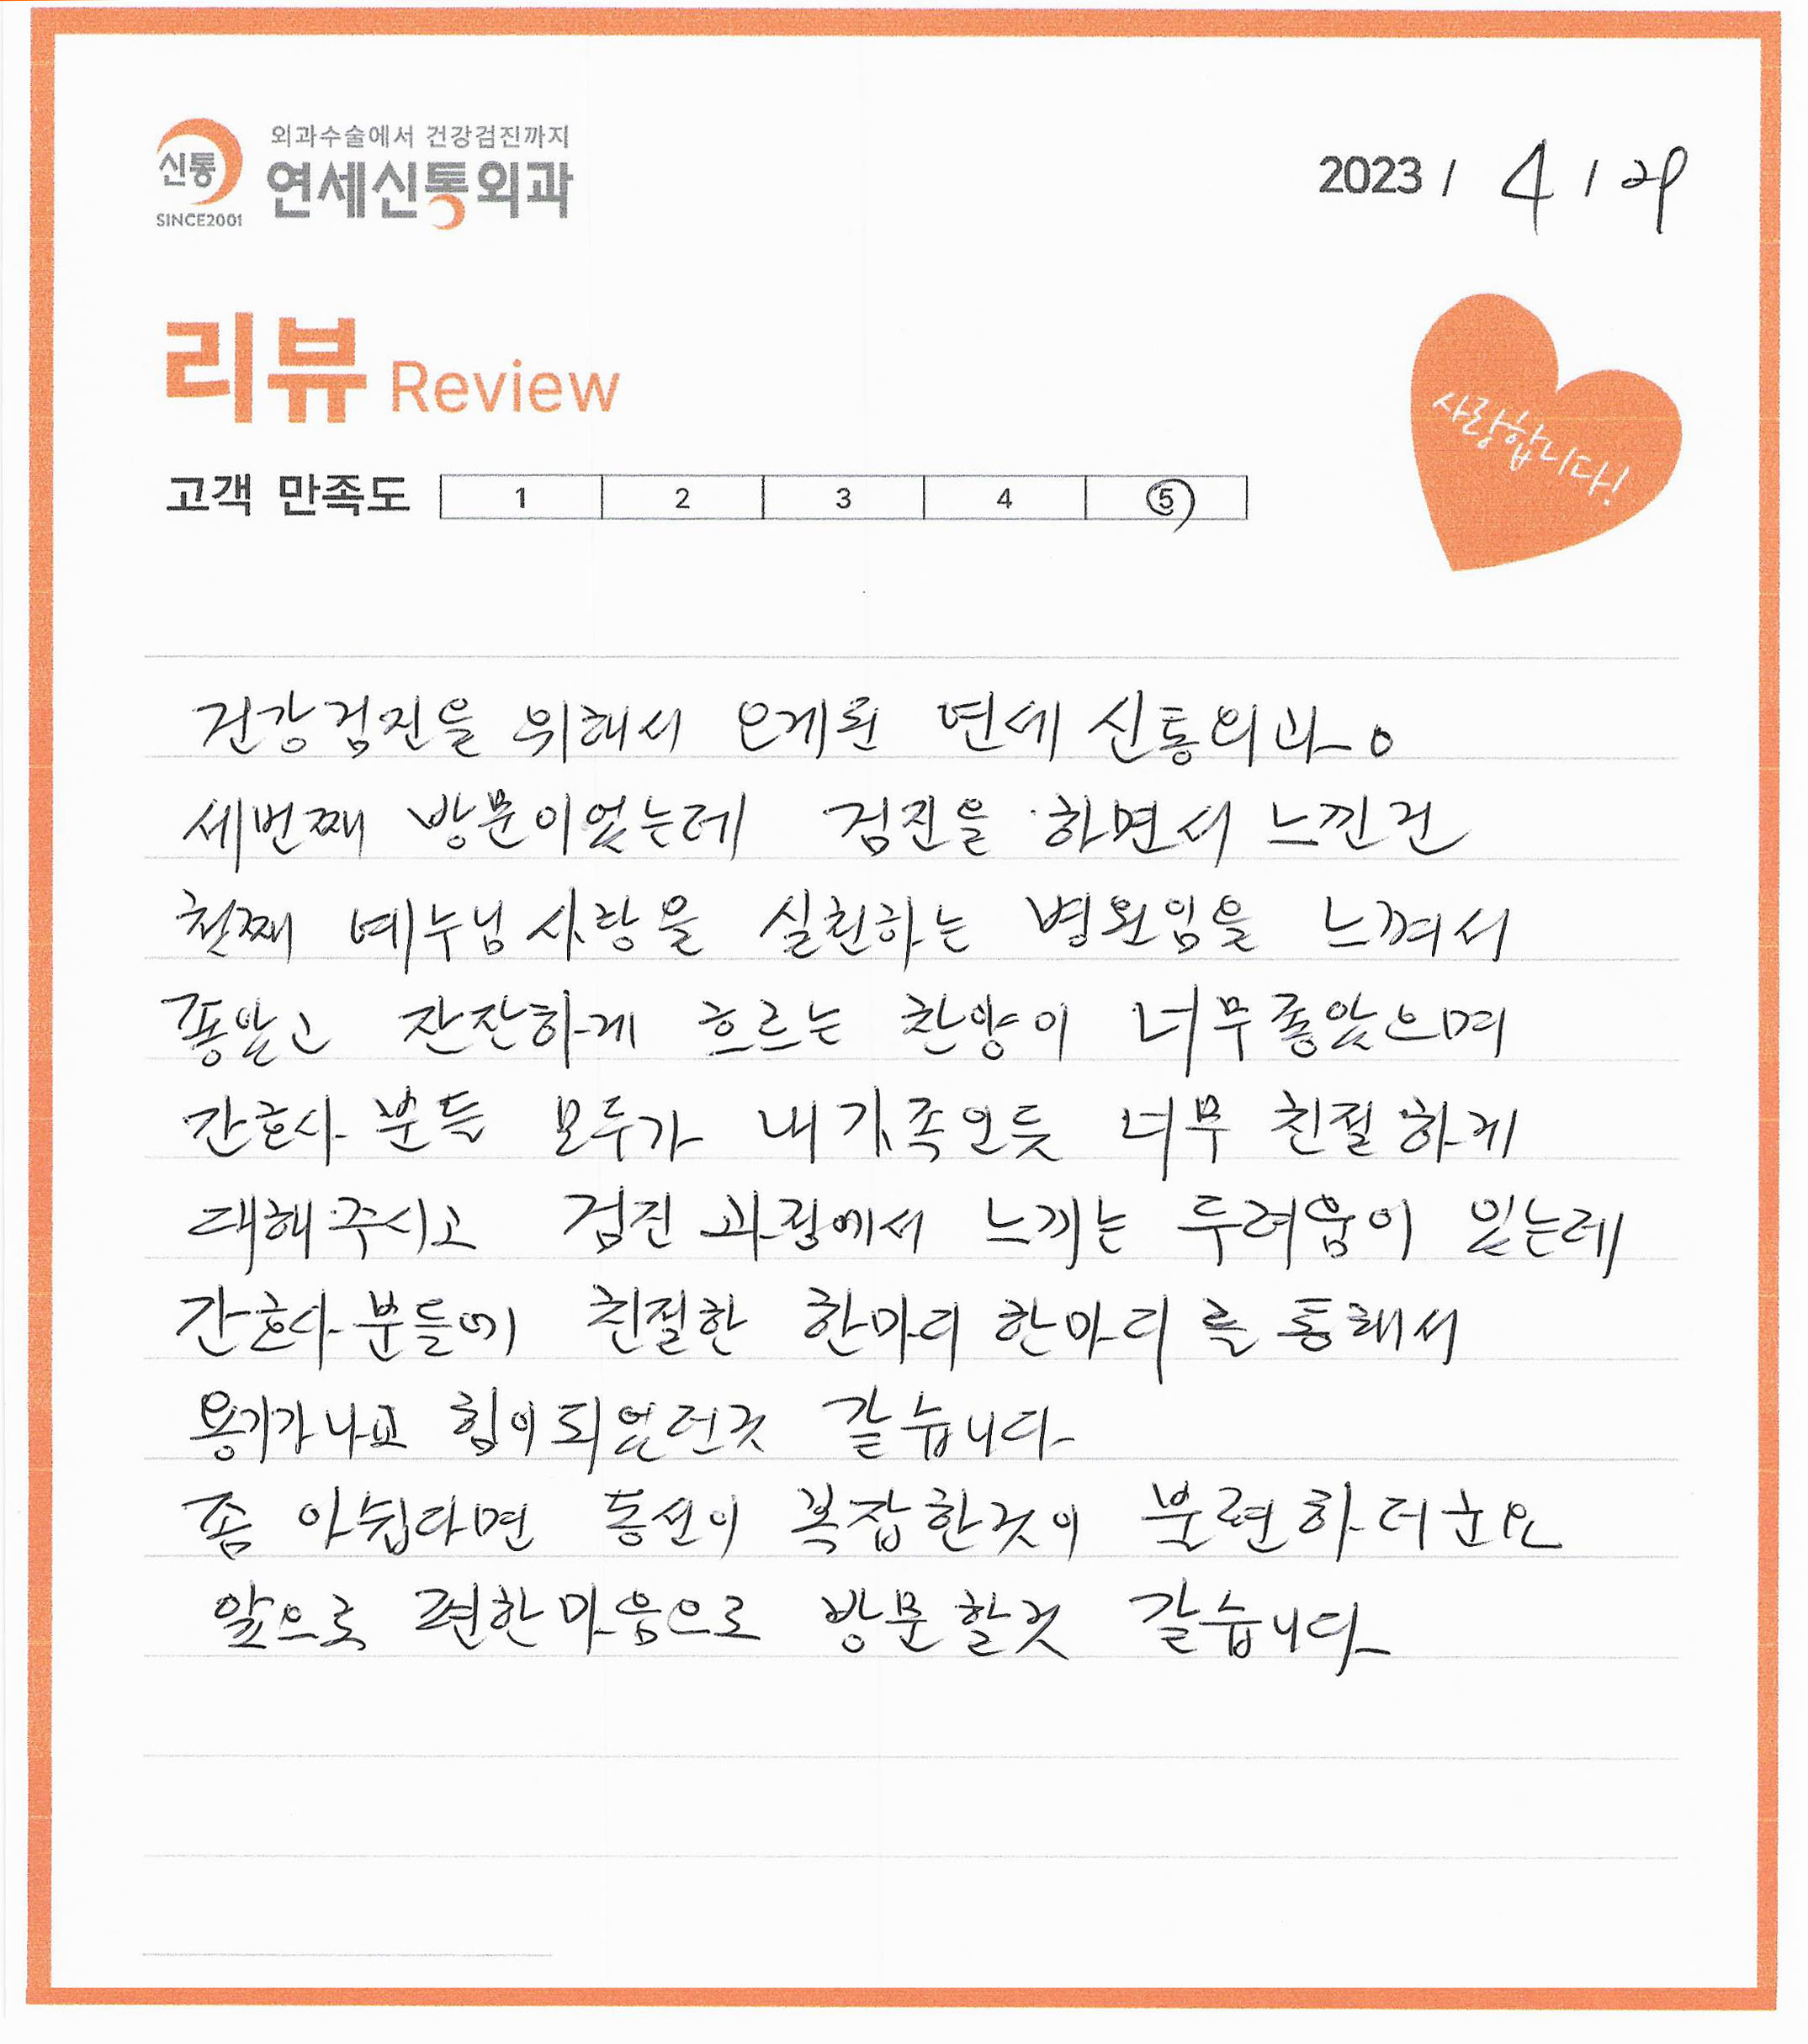 외과수술에서 건강검진까지
신통
연세신통외과
SINCE2001
2023 / 4 / 29
리뷰 Review
사랑합니다!
고객 만족도 1 2 3 4 5
건강검진을 위해서 오게된 연세 신통외과。
세번째 방문이었는데 검진을 하면서 느낀건
첫째 예수님 사랑을 실천하는 병원임을 느껴서
좋았고 잔잔하게 흐르는 찬양이 너무 좋았으며
간호사 분들 모두가 내 가족인듯 너무 친절하게
대해주시고 검진 과정에서 느끼는 두려움이 있는데
간호사 분들에 친절한 한마디 한마디를 통해서
용기가 나고 힘이 되었던것 같습니다
좀 아쉽다면 동선이 복잡한것이 불편하더군요
앞으로 편한 마음으로 방문할것 같습니다